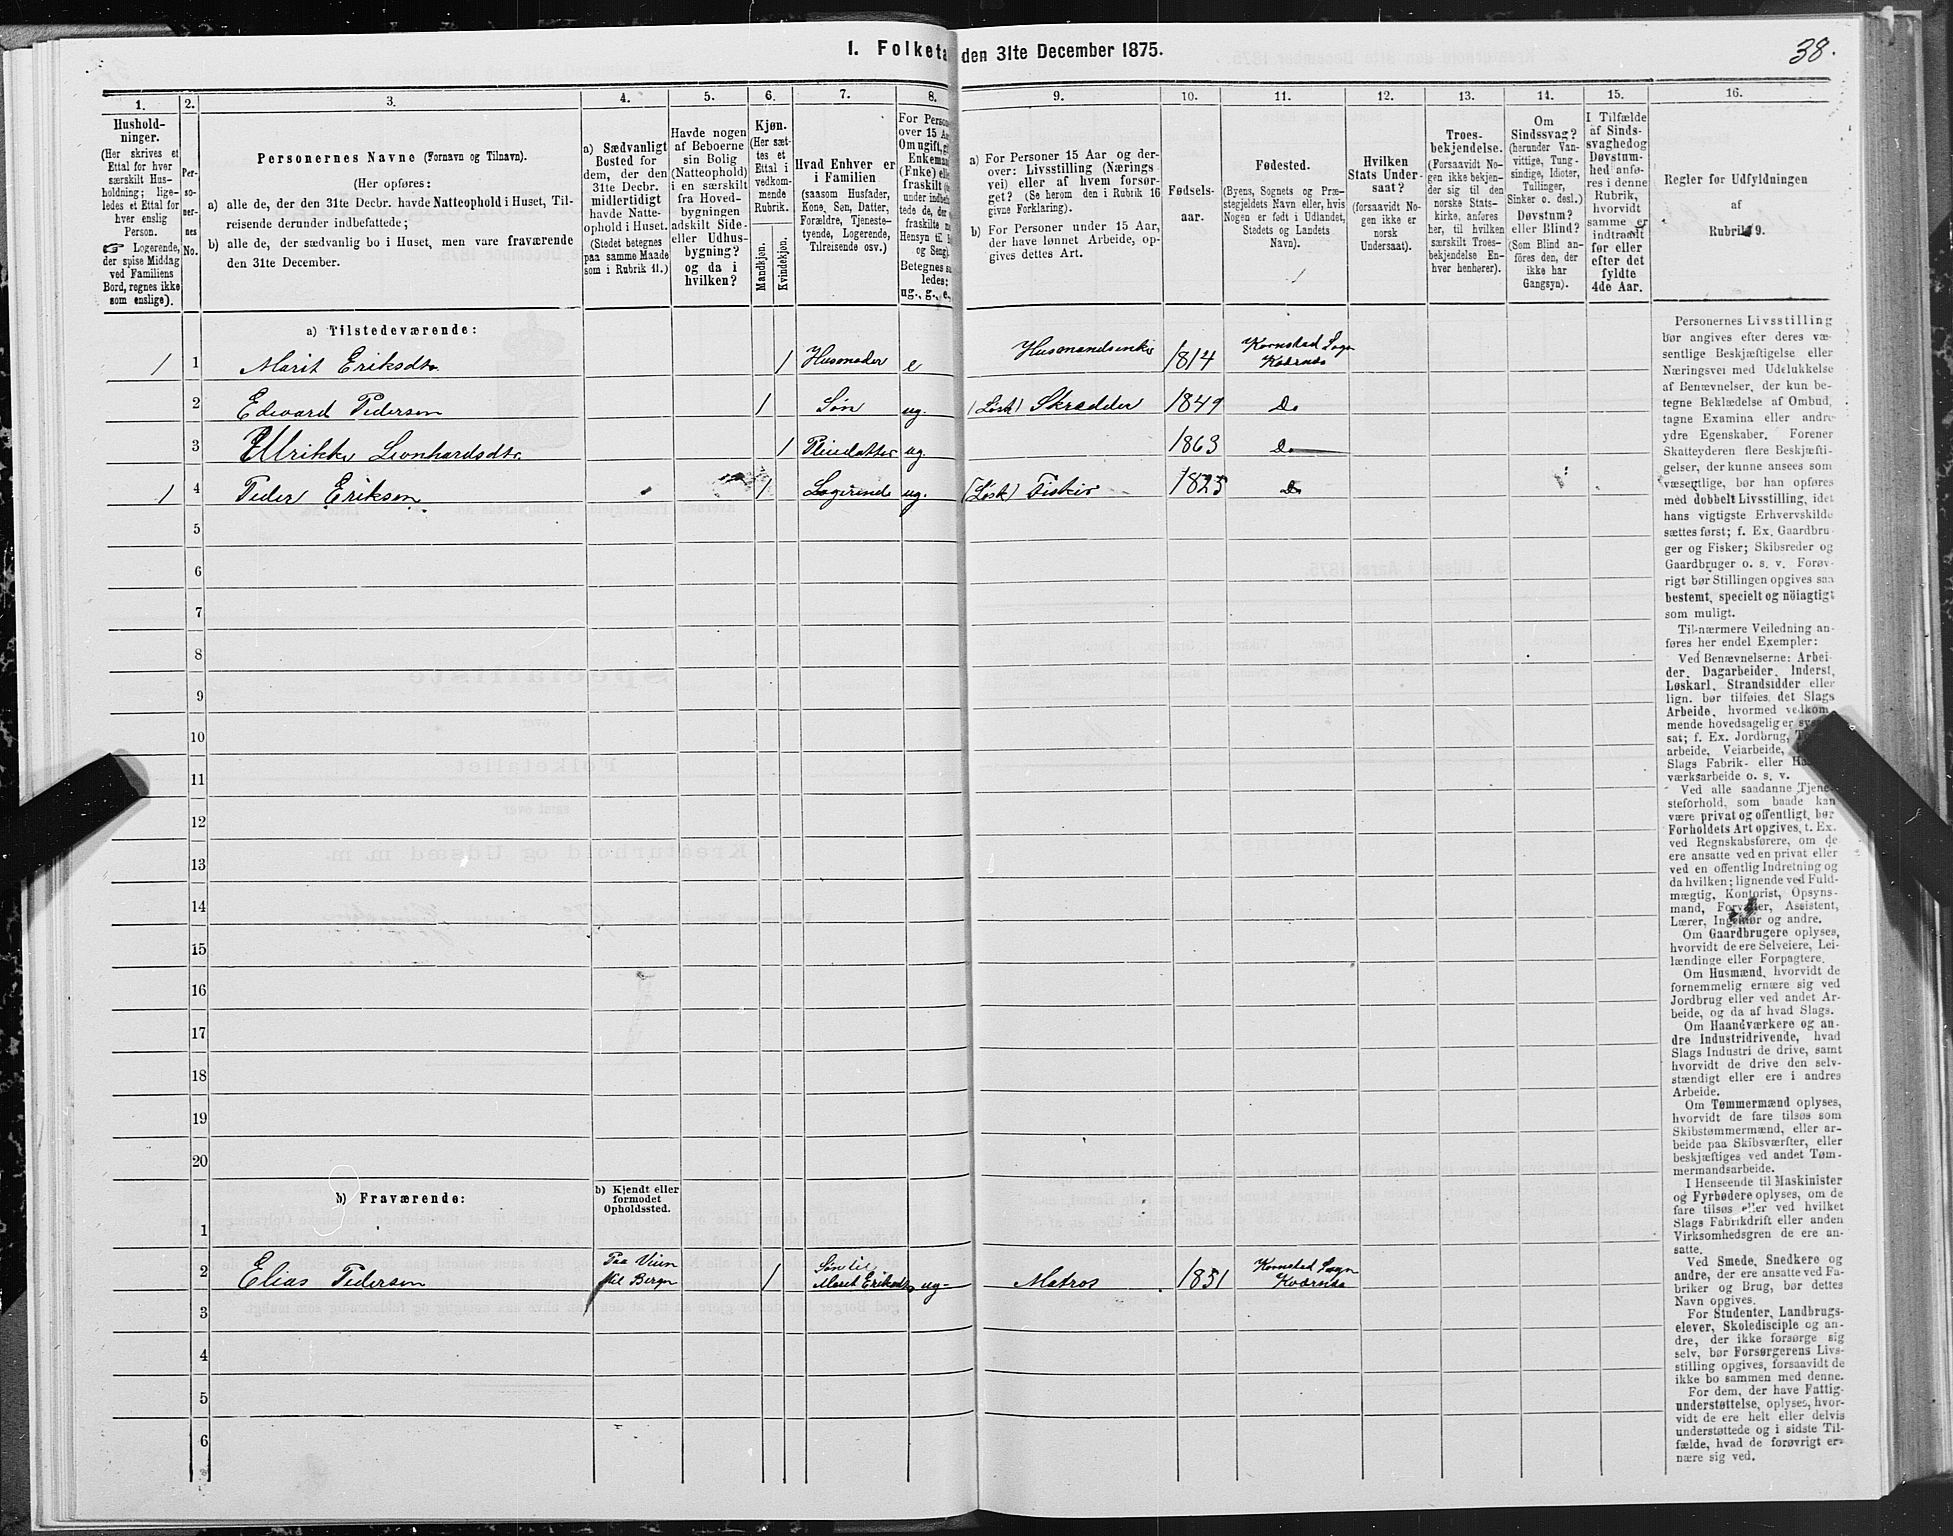 I. Folketa den 31te December 1875.
38.
1.
2.
3.
4.
5.
6.
7.
8.
9.
10.
11.
12.
13.
14.
15.
16.
Hushold-
ninger.
(Her skrives et
Ettal for hver
særskilt Hus-
holdning; lige-
ledes et Ettal for
hver enslig
Person.
☞ Logerende,
der spise Middag
ved Familiens
Bord, regnes ikke
som enslige).
Per-
so-
ner-
nes
No.
Personernes Navne (Fornavn og Tilnavn).
(Her opføres:
a) alle de, der den 31te Decbr. havde Natteophold i Huset, Til-
reisende derunder indbefattede;
b) alle de, der sædvanlig bo i Huset, men vare fraværende
den 31te December.
a) Sædvanligt
Bosted for
dem, der den
31te Decbr.
midlertidigt
havde Natte-
ophold i Huset.
(Stedet betegnes
paa samme Maade
som i Rubrik 11.)
Havde nogen
af Beboerne
sin Bolig
(Natteophold)
i en særskilt
fra Hoved-
bygningen
adskilt Side-
eller Udhus-
bygning?
og da i
hvilken?
Kjøn.
(Her sæt-
tes et
Ettal i
vedkom-
mende
Rubrik.
Mandkjøn.
Kvindekjøn.
Hvad Enhver er
i Familien
(saasom Husfader,
Kone, Søn, Datter,
Forældre, Tjeneste-
tyende, Logerende,
Tilreisende osv.)
For Perso
over 15 Aa
Om ugift, gi
Enkeman
(Enke) elle
fraskilt
under indbefat-
tede de, der
fraskilte
Hensyn til
og Seng).
Betegnes s
ledes:
ug., g., e.,
a) For Personer 15 Aar og der-
over: Livsstilling (Nærings
vei) eller af hvem forsør-
get? (Se herom den i Rubrik 16
givne Forklaring).
b) For Personer under 15 Aar,
der have lønnet Arbeide, op-
gives dettes Art.
Fødsels-
aar.
Fødested.
(Byens, Sognets og Præ-
stegjeldets Navn eller, hvis
Nogen er født i Udlandet,
Stedets og Landets
Navn).
Hvilken
Stats Under-
saat?
(forsaavidt No-
gen ikke er
norsk
Undersaat).
Troes-
bekjendelse.
(Forsaavidt No-
gen ikke bekjen-
der sig til den
norske Stats-
kirke, anføres
her, til hvilken
særskilt Troes-
bekjendelse En-
hver henhører).
Om
Sindssvag?
(herunder Van-
vittige, Tung-
sindige, Idioter,
Tullinger,
Sinker o. desl.)
Døvstum?
eller Blind?
(Som Blind an-
føres den, der
ikke har
Gangsyn).
I Tilfælde
af Sinds-
svaghed og
Døvstum-
hed anfø-
res i denne
Rubrik,
hvorvidt
samme er
indtraadt
før eller
efter det
fyldte
4de Aar.
Regler for Udfyldningen
af
Rubrik 9.
a) Tilstedeværende:
1 1 Marit Eriksdtr. 1 Husmoder e Husmandsenke 1814 Kornstad Sogn
Kværnæs
2 Edevard Pedersen 1 Søn ug. (Løsk) Skrædder 1849 Do
3 Ulrikke Leonhardsdtr. 1 Pleiedatter ug. 1863 Do
1 4 Peder Eriksen 1 Logerende ug. (Løsk) Fisker 1825 Do
5
6
7
8
9
10
11
12
13
14
15
16
17
18
19
20
b) Fraværende:
b) Kjendt eller
formodet
Opholdssted.
1
2 Elias Pedersen Paa Veien
til Bergn 1 Søn til
Maret Eriksdtr ug- Matros 1851 Kornstad Sogn
Kværnæs
3
4
5
6
Personernes Livsstilling
bør angives efter deres væ-
sentlige Beskjæftigelse eller
Næringsvei med Udelukkelse
af Benævnelser, der kun be-
tegne Beklædelse af Ombud,
tagne Examina eller andre
ydre Egenskaber. Forener
Skatteyderen flere Beskjæfti-
gelser, der kunne ansees som
væsentlige, bør han opføres
med dobbelt Livsstilling, idet
hans vigtigste Erhvervskilde
sættes først; f. Ex. Gaardbru-
ger og Fisker; Skibsreder og
Gaardbruger o. s. v. Forøv-
rigt bør Stillingen opgives saa
bestemt, specielt og nöiagtigt
som muligt.
Til nærmere Veiledning an-
føres her endel Exempler:
Ved Benævnelserne: Arbei-
der, Dagarbeider, Inderst,
Løskarl, Strandsidder eller
lign. bør tilføies det Slags
Arbeide, hvormed vedkom-
mende hovedsagelig er syssel-
sat; f. Ex. Jordbrug, To
arbeide, Veiarbeide,
Slags Fabrik- eller Ha
værksarbeide o. s. v.
Ved alle saadanne Tjene-
steforhold, som baade kan
være privat og offentligt, bør
Forholdets Art opgives, t. Ex.
ved Regnskabsførere, om de
ere ansatte ved en privat eller
ved en offentlig Indretning og
da hvilken; lignende ved Fuld-
mægtig, Kontorist, Opsyns-
mand, Forvalter, Assistent,
Lærer, Ingeniør og andre.
Om Gaardbrugere oplyses,
hvorvidt de ere Selveiere, Lei-
lændinge eller Forpagtere.
Om Husmænd, hvorvidt de
fornemmelig ernære sig ved
Jordbrug eller ved andet Ar-
beide, og da af hvad Slags.
Om Haandværkere og an-
dre Industridrivende, hvad
Slags Industri de drive, samt
hvorvidt de drive den selv-
stændigt eller ere i andres
Arbeide.
Om Tømmermænd oplyses,
hvorvidt de fare tilsøs som
Skibstømmermænd, eller ar-
beide paa Skibsværfter, eller
beskjæftiges ved andet Tøm-
mermandsarbeide.
I Henseende til Maskinister
og Fyrbødere oplyses, om de
fare tilsøs eller ved hvilket
Slags Fabrikdrift eller anden
Virksomhedsgren de ere an-
satte.
Ved Smede, Snedkere og
andre, der ere ansatte ved Fa-
briker og Brug, bør dettes
Navn opgives.
For Studenter, Landbrugs-
elever, Skoledisciple og an-
dre, der ikke forsørge sig
selv, bør Forsørgerens Livs-
stilling opgives, forsaavidt de
ikke bo sammen med denne.
For dem, der have Fattig-
understøttelse, oplyses, hvor-
vidt de ere helt eller delvis
understøttede og i sidste Til-
fælde, hvad de forøvrigt er-
nære sig ved.